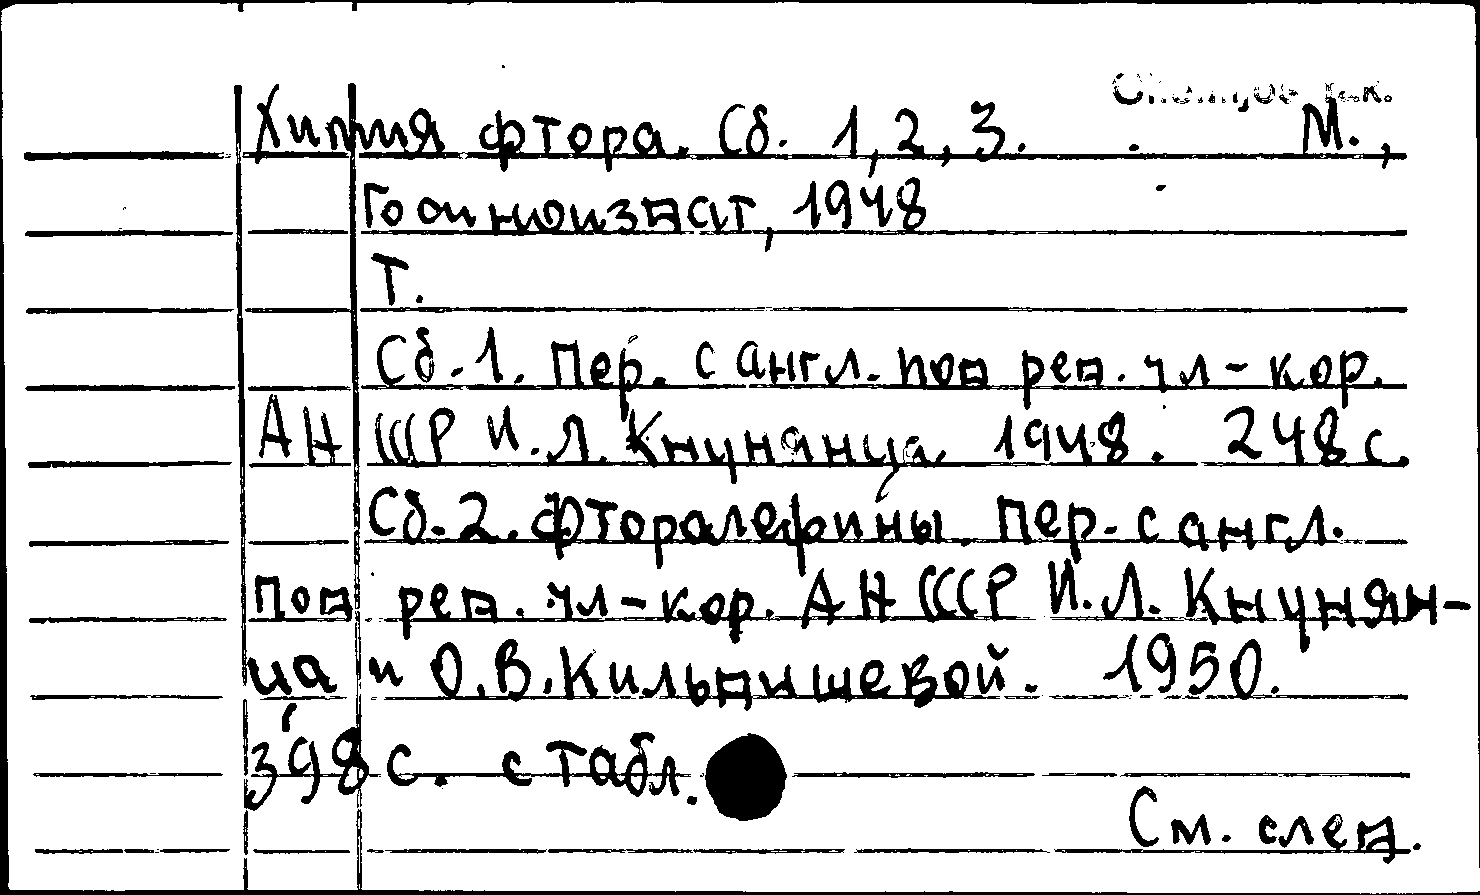 Химия фтора. Сб. 1, 2, 3. М.,
Госиноиздат, 1948
Т.
Сб. 1. Пер. с англ. под ред. чл-кор.
АН СССР И.Л. Кнунянца. 1948. 248 с.
Сб. 2. Фторолефины. Пер. с англ.
под ред. чл-кор. АН СССР И.Л. Кнунян-
ца и О.В. Кильдишевой. 1950.
398 с. с табл.
См. след.